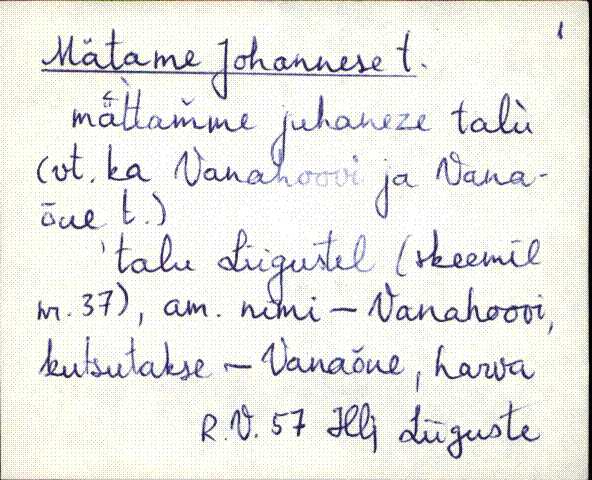 1
Mätame Johannese t.
mä̀ttam̆me juhaneze talù
(vt. ka Vanahoovi ja Vana-
õue t.)
'talu Liigustel (skeemil
nr. 37), am. nimi – Vanahoovi,
kutsutakse – Vanaõue, harva
R.V. 57 Hlj Liiguste